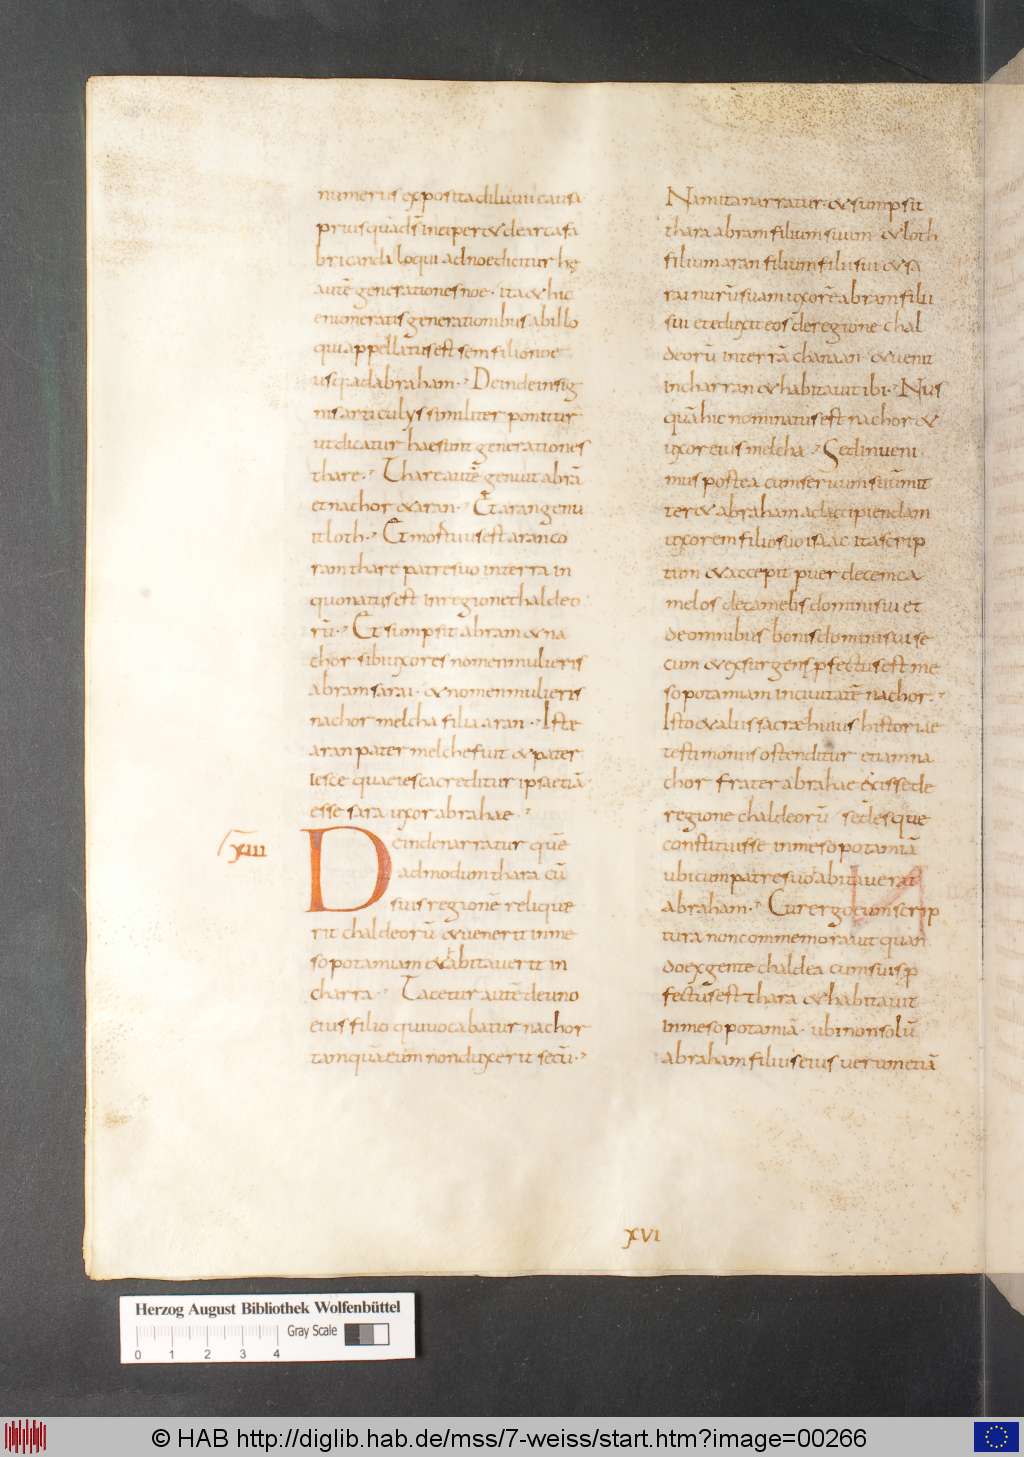 numerus exposita diluuii causa
priusquā dr̄ inciper & de arca fa
bricanda loqui ad noe dicitur hę
autē generationes noe · ita & hic
enumeratis generationibus ab illo
qui appellatus est sem filio noe
usq; ad abraham · Deinde insig
nis articulys similiter ponitur
ut dicatur hae sunt generationes
thare · Thare autē genuit abrā
et nachor & aran · Et aran genu
it loth · Et mortuus est aran co
ram thare patre suo in terra in
quo natus est in regione chaldeo
rū · Et sumpsit abram & na
chor sibi uxores nomen mulieris
abram sarai · & nomen mulieris
nachor melcha filia aran · Iste
aran pater melche fuit & pater
iesce quae iesca creditur ipsa etiā
esse sara uxor abrahae ·
XIII
Deinde narratur quē
admodum thara cū
suis regionē relique
rit chaldeorū & uenerit in me
sopotamiam & habitauerit in
charra · Tacetur autē de uno
eius filio qui uocabatur nachor
tamquā eum non duxerit secū ·
Nam ita narratur · & sumpsit
thara abram filium suum & loth
filium aran filium filii sui & sa
rai nurū suam uxorē abram filii
sui et eduxit eos de regione chal
deorū in terrā chanaan · & uenit
in charran & habitauit ibi · Nus
quā hic nominatus est nachor &
uxor eius melcha · Sed inueni
mus postea cum seruum suū mit
ter & abraham ad accipiendam
uxorem filio suo isaac ita scrip
tum & accepit puer decem ca
melos de camelis domini sui et
de omnibus bonis domini sui se
cum & exsurgens pfectus est me
sopotamiam in ciuitatē nachor ·
Isto & aliis sacrae huius historiae
testimoniis ostenditur etiam na
chor frater abrahae exisse de
regione chaldeorū sedesque
constituisse in mesopotamiā
ubi cum patre suo abitauerat
abraham · Cur ergo eum scrip
tura non commemorauit quan
do ex gente chaldea cum suis p
fectus est thara & habitauit
in mesopotamiā · ubi non solū
abraham filius eius uerum etiā
XVI
Herzog August Bibliothek Wolfenbüttel
Gray Scale
0 1 2 3 4
© HAB http://diglib.hab.de/mss/7-weiss/start.htm?image=00266